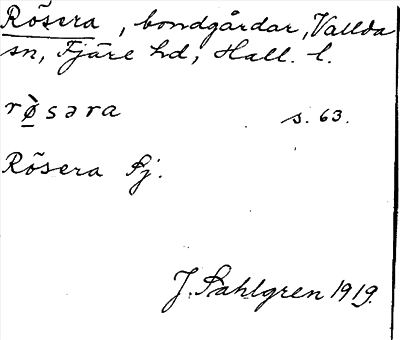 Rösera, bondgårdar, Vallda
sn, Fjäre hd, Hall. l.
rø̀səra s. 63.
Rösera Sj.
J. Sahlgren 1919.